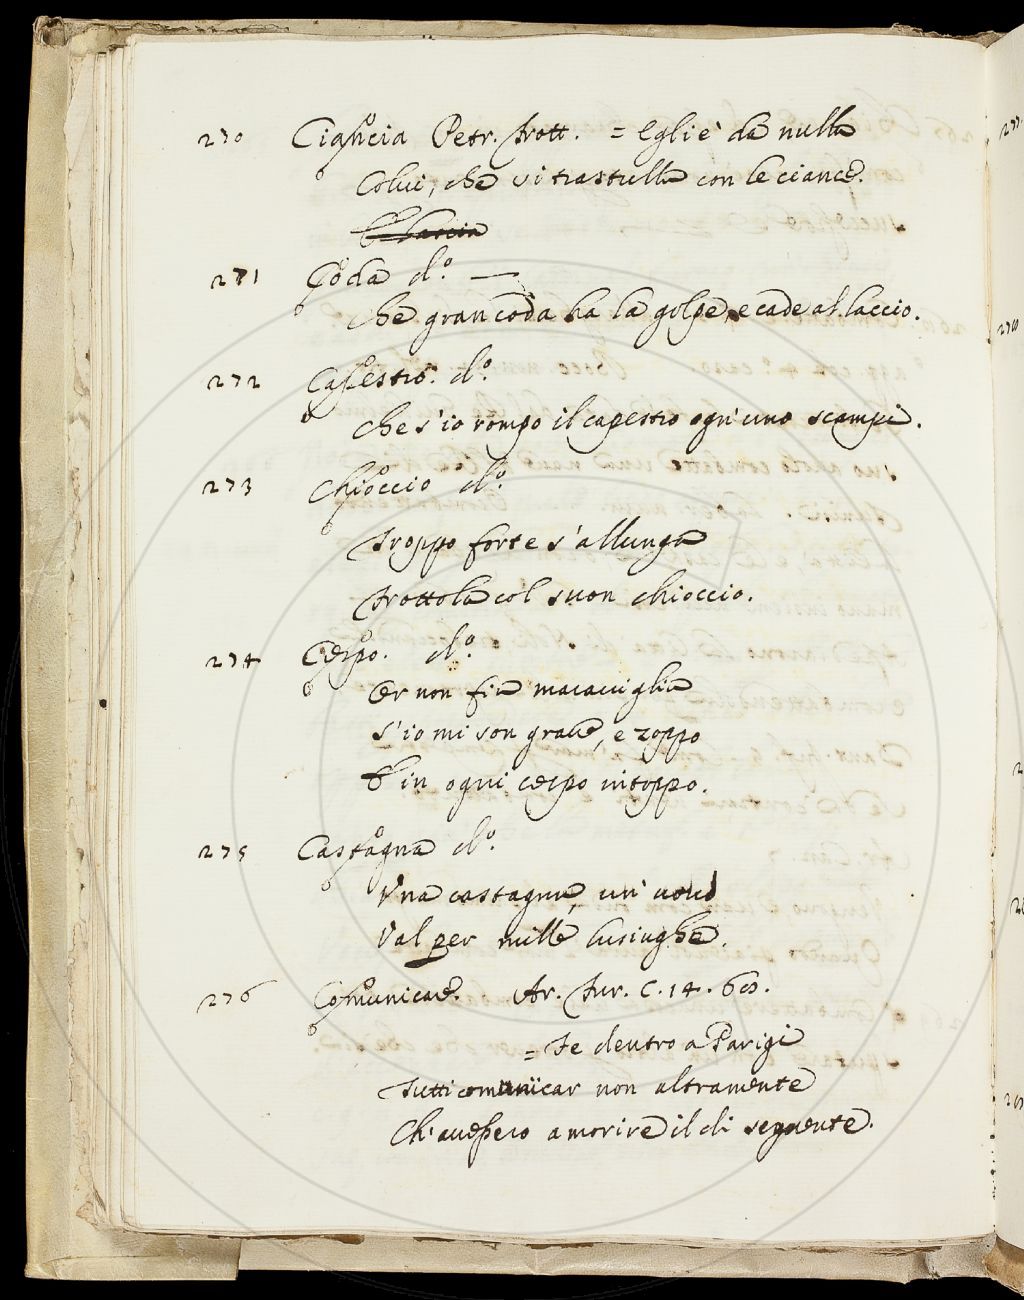 270 Ciancia Petr. Frott. = Egli è da nulla
Colui, che vi trastulla con le ciance.
271 Coda d.º —
Che gran coda ha la golpe, e cade al laccio.
272 Capestro. d.º
Che s'io rompo il capestro ogn'uno scampi.
273 Chioccio d.º
Troppo forte s'allunga
Frottola col suon chioccio.
274 Cespo. d.º
Or non fia maraviglia
S'io mi son grave, e zoppo
E in ogni cespo intoppo.
275 Castagna d.º
Una castagna, un'
Val per mille lusinghe.
276 Comunicare. Ar. Fur. C. 14. 68.
= Fe dentro a Parigi
Tutti comunicar non altramente
Ch'avessero a morire il dì seguente.